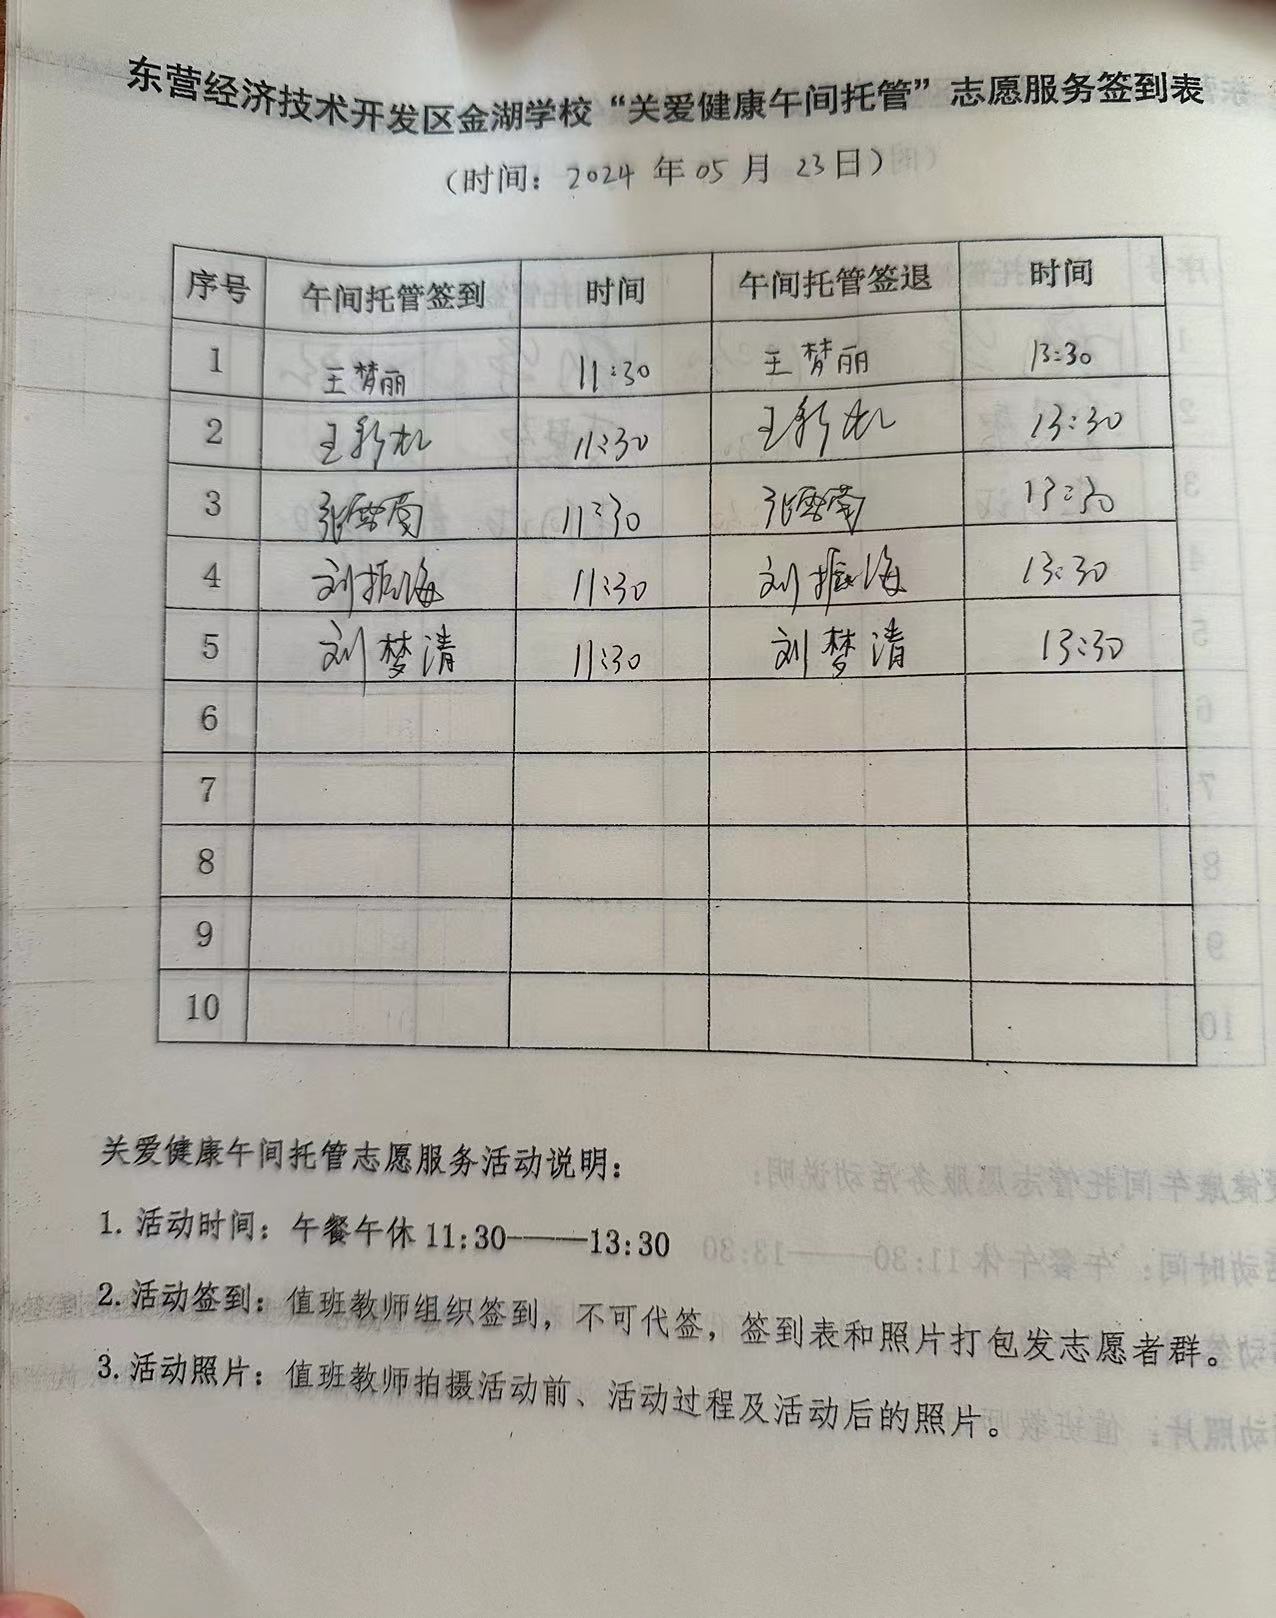 东营经济技术开发区金湖学校“关爱健康午间托管”志愿服务签到表
（时间：2024 年 05 月 23日）
序号 午间托管签到 时间 午间托管签退 时间
1 王梦丽 11:30 王梦丽 13:30
2 11:30 13:30
3 11:30 13:30
4 刘振海 11:30 刘振海 13:30
5 刘梦清 11:30 刘梦清 13:30
6
7
8
9
10
关爱健康午间托管志愿服务活动说明：
1. 活动时间：午餐午休 11:30——13:30
2. 活动签到：值班教师组织签到，不可代签，签到表和照片打包发志愿者群。
3. 活动照片：值班教师拍摄活动前、活动过程及活动后的照片。